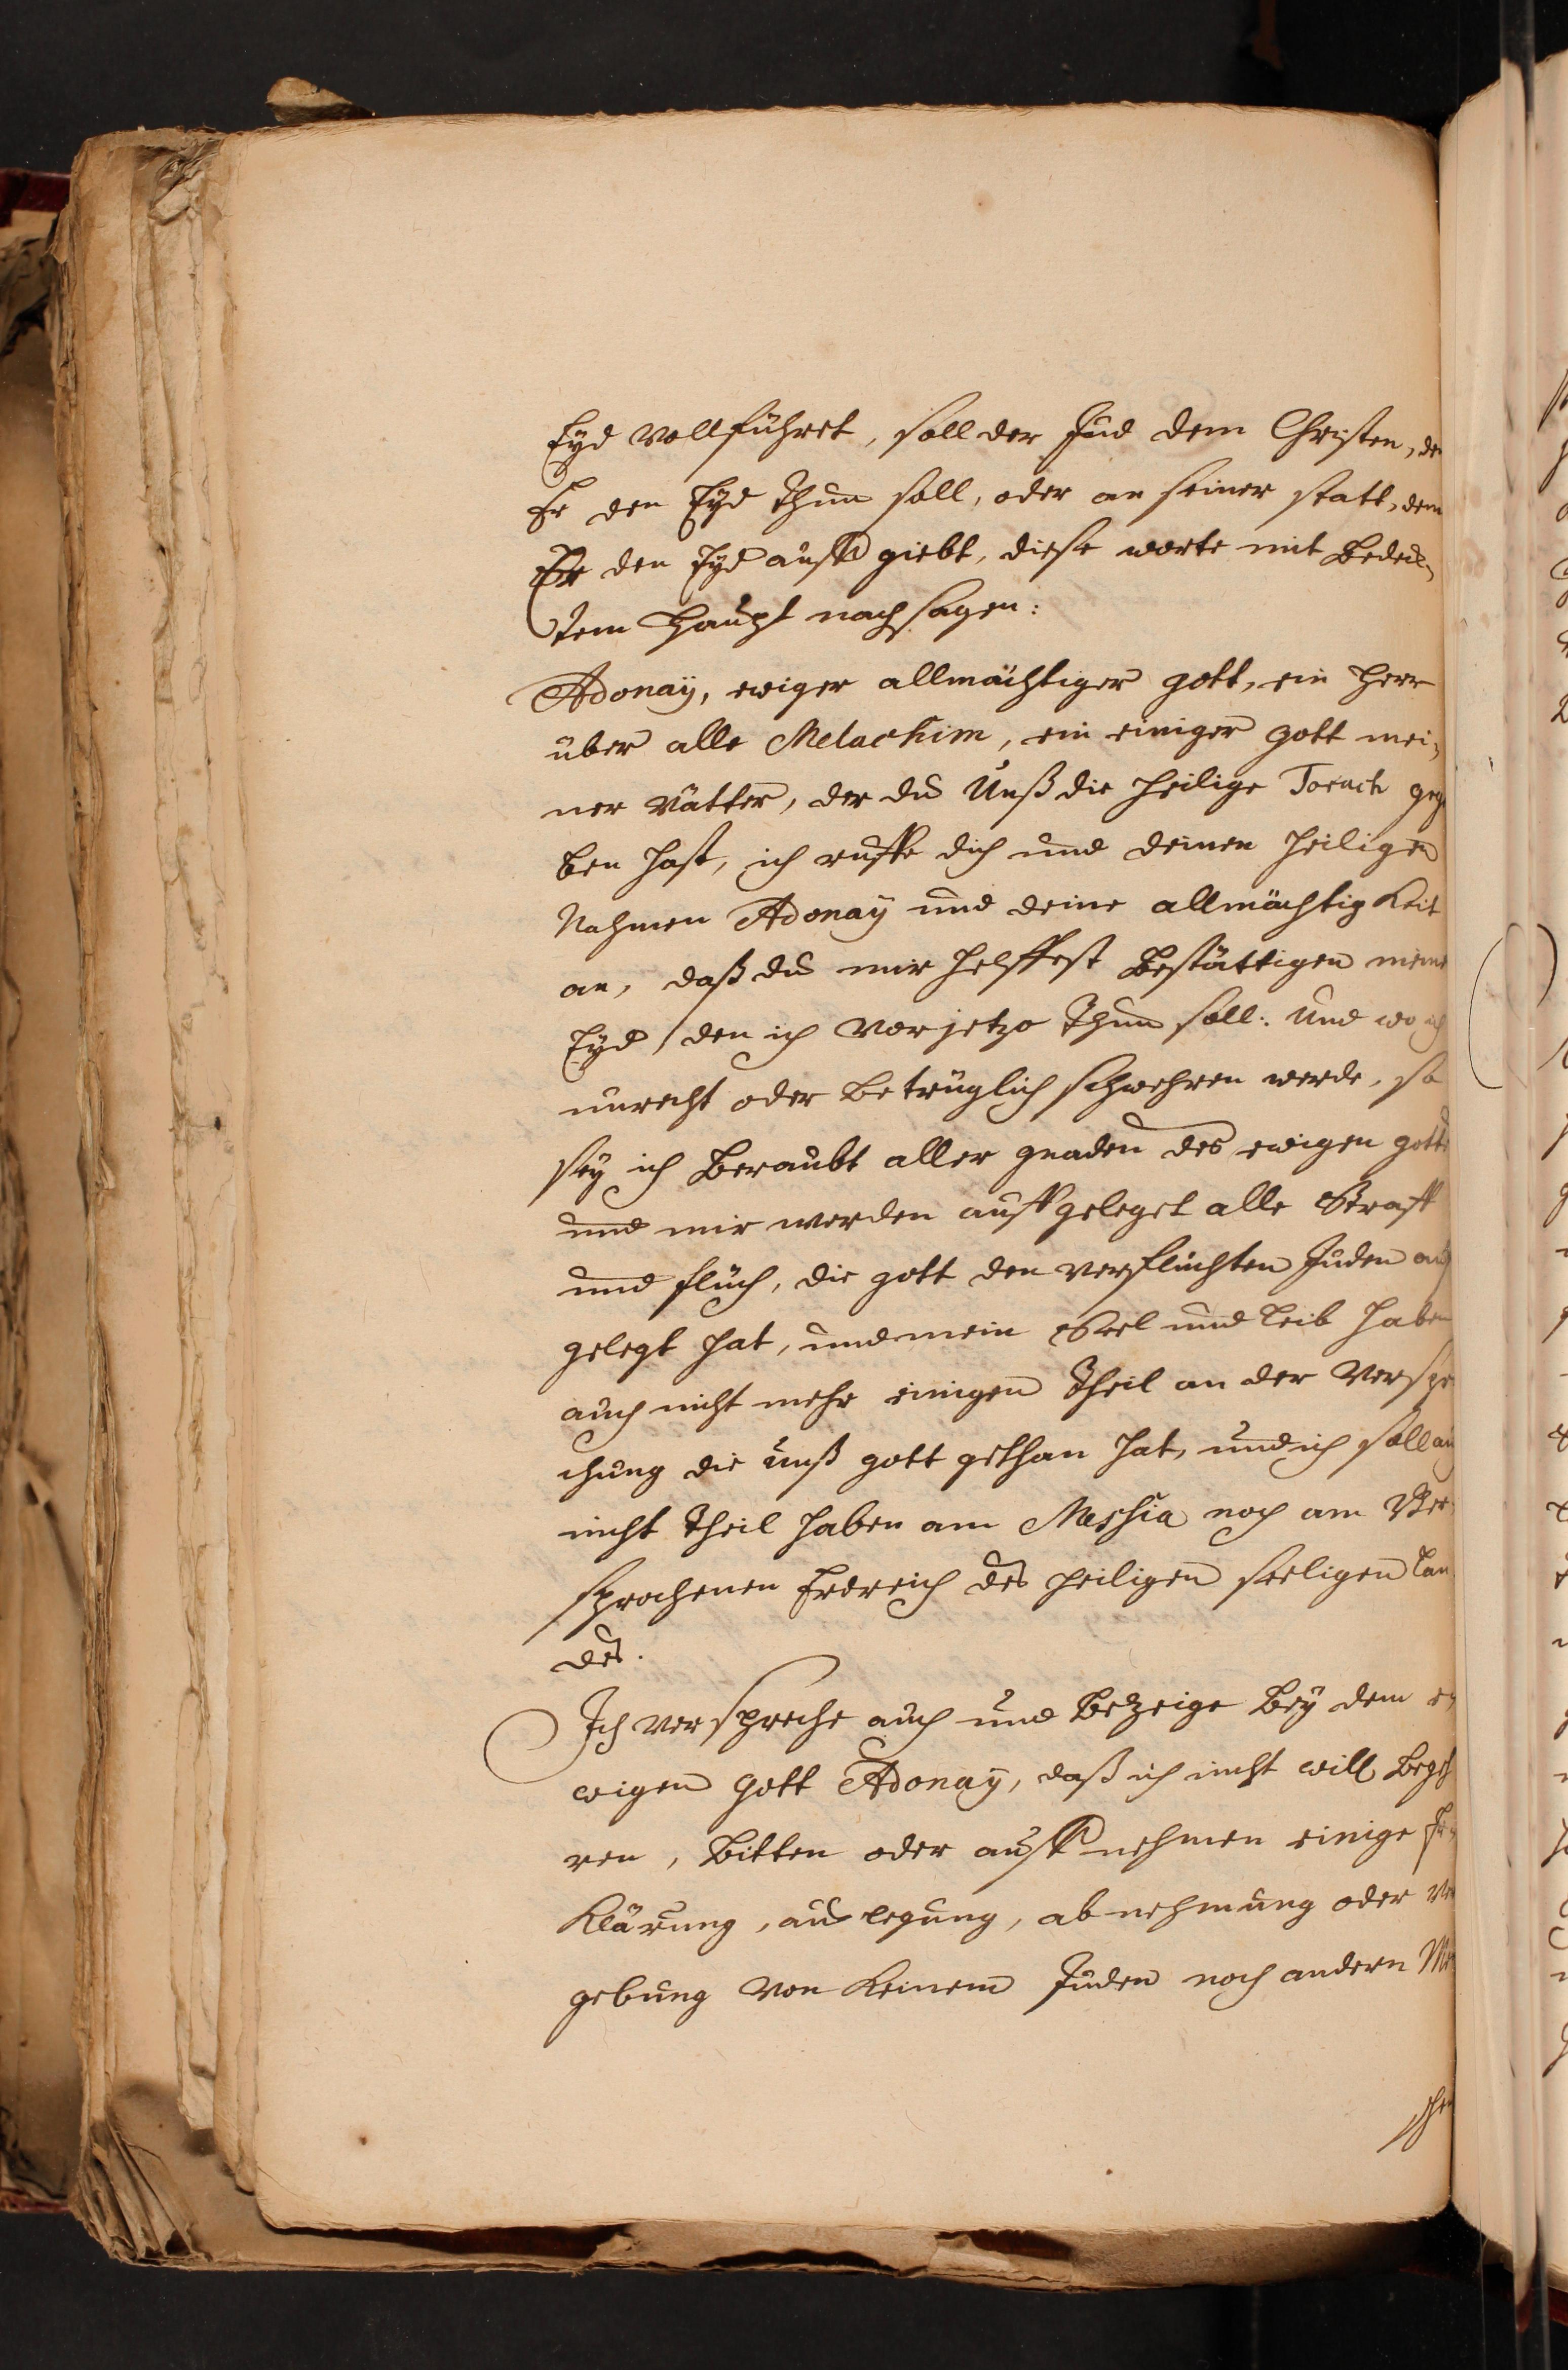 Eyd vollführet, soll der Jud dem Christen, de
Er den Eyd thun soll, oder an seiner statt, dem
Er den Eyd auff giebt, diese worte mit Bedeck„
tem Haupt nach sagen:
Adonaÿ, ewiger allmächtiger gott, ein Herr
über alle Melachim, ein einiger gott mei„
ner Vätter, der du Unß die heilige Torach gege
ben hast, ich ruffe dich und deinen heiligen
Nahmen Adonaÿ und deine allmächtigkeit
an, daß du mir helffest Bestättigen meine
Eyd, den ich vorjetzo thun soll: Und wo ich
unrecht oder Betrüglich schwehren werde, so
seÿ ich Beraubt aller gnaden des ewigen gotte
und mir werden auffgeleget alle Straff
und flüch, die gott den verfluchten Juden auf
gelegt hat, und mein Seel und Leib haben
auch nicht mehr einigen Theil an der Verspre
chung die unß gott gethan hat, und ich soll au
nicht Theil haben am Messia noch am Ver„
sprochenen Erdreich des heiligen seeligen Lan
des.
Ich verspreche auch und Bezeige Beÿ dem e„
wigen gott Adonaÿ, daß ich nicht will Begeh
ren, Bitten oder auff nehmen einige Er„
klärung, auslegung, abnehmung oder Ver
gebung von keinem Juden noch andern Men
schen